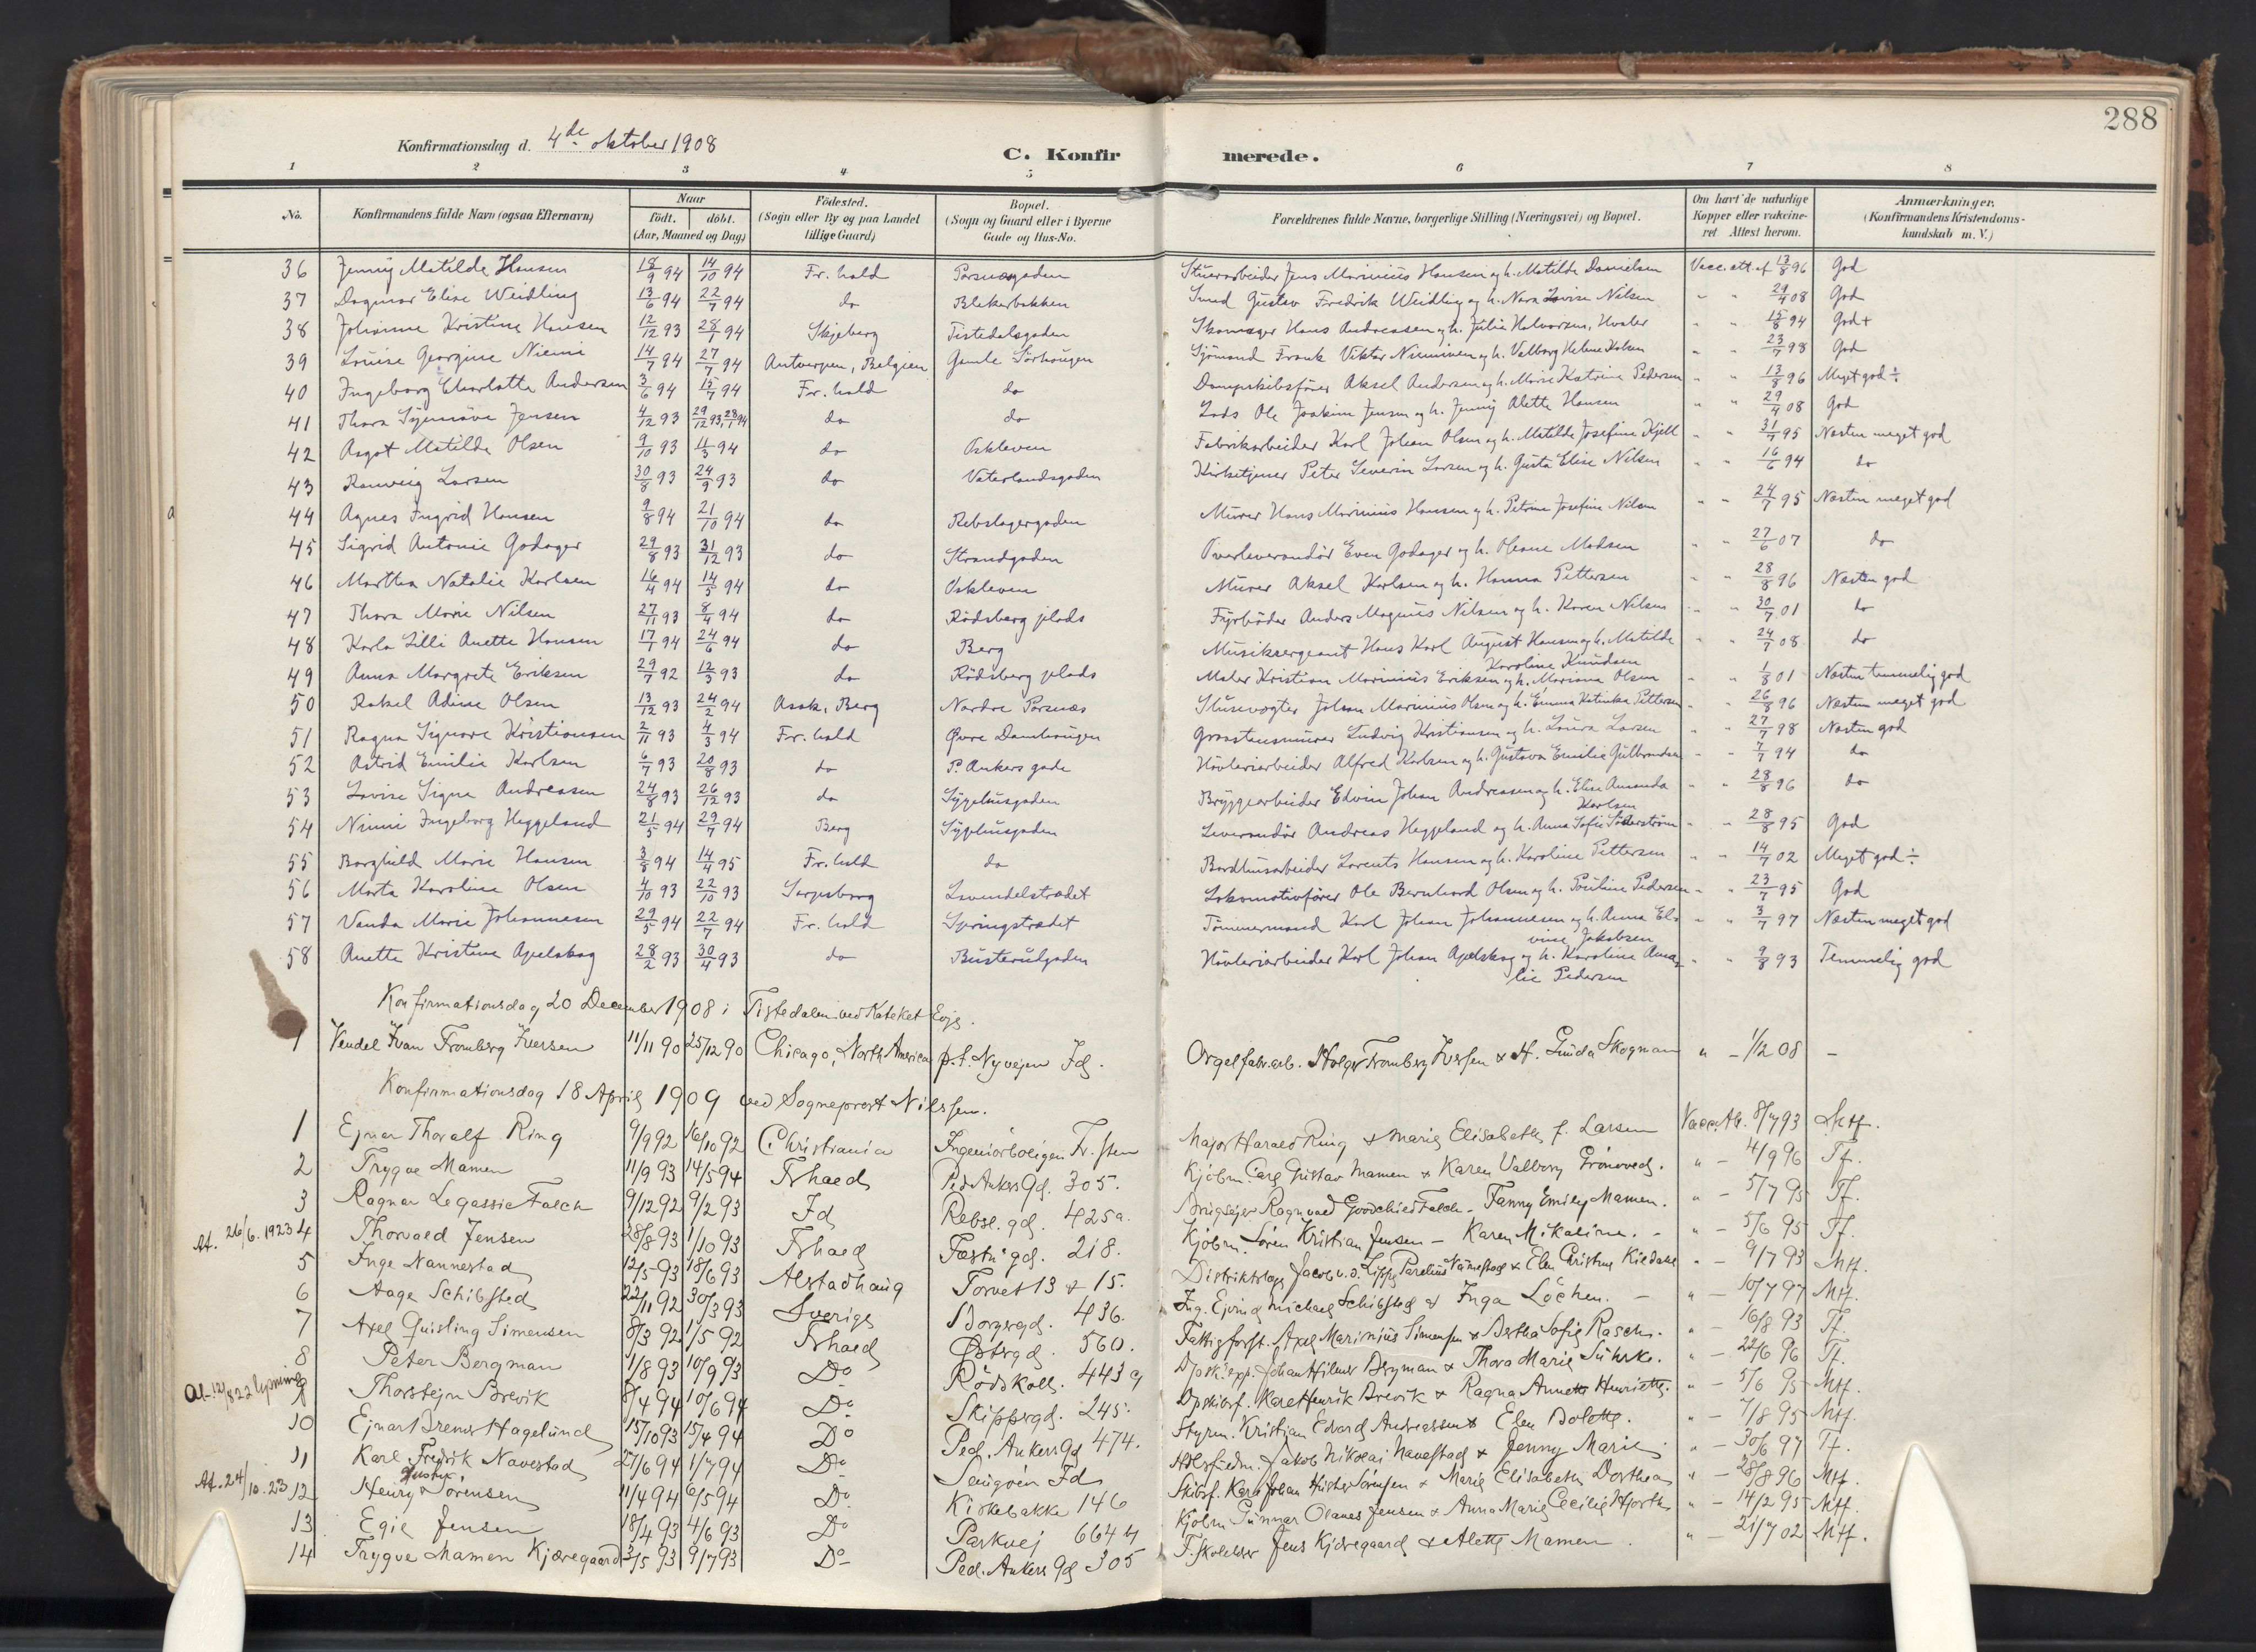 288
Konfirmationsdag d. 4de oktober 1908
C. Konfirmerede.
1 2 3 4 5 6 7 8
No. Konfirmandens fulde Navn (ogsaa Efternavn) Naar födt. döbt. (Aar, Maaned og Dag) Födested. (Sogn eller By og paa Landet tillige Gaard) Bopæl. (Sogn og Gaard eller i Byerne Gade og Hus-No. Forældrenes fulde Navne, borgerlige Stilling (Næringsvei) og Bopæl. Om havt de naturlige Kopper eller vakcineret Attest herom. Anmærkninger. (Konfirmandens Kristendomskundskab m. V.)
36 Jenny Matilde Hansen 18/9 94 14/10 94 Fr. hald Porsnesgaden Stuerarbeider Jens Marinius Hansen og h. Matilde Danielsen Vacc. att. af 13/8 96 God
37 Dagmar Elise Weidling 13/6 94 22/7 94 do Blekerbakken Smed Gustav Fredrik Weidling og h. Nora Lovise Nilsen " " 29/4 08 God
38 Johanne Kristine Hansen 12/12 93 28/1 94 Skjeberg Tistedalsgaden Skomager Hans Andreassen og h. Julie Halvorsen, Hvaler " " 15/8 94 God+
39 Louise Georgine Niemi 14/7 94 27/7 94 Antwerpen, Belgien Gamle Sörhaugen Sjömand Frank Viktor Nieminen og h. Valborg Helene Kolsen " " 23/7 98 God
40 Ingeborg Charlotte Andersen 3/6 94 15/7 94 Fr. hald do Dampskibsförer Aksel Andersen og h. Marie Katrine Pedersen " " 13/8 96 Meget god ÷
41 Thora Synnöve Jensen 4/12 93 29/12 93, 28/1 94 do do Lods Ole Joakim Jensen og h. Jenny Alette Hansen " " 29/4 08 God
42 Aagot Matilde Olsen 9/10 93 4/3 94 do Oskleven Fabrikarbeider Karl Johan Olsen og h. Matilde Josefine Kjell " " 31/7 95 Næsten meget god
43 Ranveig Larsen 30/8 93 24/9 93 do Vaterlandsgaden Kirketjener Peter Severin Larsen og h. Gusta Elise Nilsen " " 16/6 94 do
44 Agnes Ingrid Hansen 9/8 94 21/10 94 do Rebslagergaden Murer Hans Marinius Hansen og h. Petrine Josefine Nilsen " " 24/7 95 Næsten meget god
45 Sigrid Antonie Godager 29/8 93 31/12 93 do Strandgaden Overleverandör Even Godager og h. Oleane Madsen " " 27/6 07 do
46 Marthea Natalie Karlsen 16/4 94 14/5 94 do Oskleven Murer Aksel Karlsen og h. Hanna Pettersen " " 28/8 96 Næsten god
47 Thora Marie Nilsen 27/11 93 8/4 94 do Rödsberg plads Fyrböder Anders Magnus Nilsen og h. Karen Nilsen " " 30/7 01 do
48 Karla Lilli Anette Hansen 17/1 94 24/6 94 do Berg Musiksergeant Hans Karl August Hansen og h. Matilde Karoline Knudsen " " 24/7 08 do
49 Anna Margrete Eriksen 29/7 92 12/3 93 do Rödsberg plads Maler Kristian Marinius Eriksen og h. Mariane Olsen " " 1/8 01 Næsten temmelig god
50 Rakel Adine Olsen 13/12 93 24/2 94 Asak, Berg Nordre Porsnæs Slusevogter Johan Marinius Olsen og h. Emma Katinka Pettersen " " 26/8 96 Næsten meget god
51 Ragna Signora Kristiansen 2/11 93 4/3 94 Fr. hald Øvre Damhaugen Graastensmurer Ludvig Kristiansen og h. Laura Larsen " " 27/7 98 Næsten god
52 Astrid Emilie Karlsen 6/7 93 20/8 93 do P. Ankers gade Hövleriarbeider Alfred Karlsen og h. Gustava Emilie Gulbrandsen " " 7/7 94 do
53 Lovise Signe Andreasen 24/8 93 26/12 93 do Sygehusgaden Bryggearbeider Edvin Johan Andreasen og h. Elise Amanda Karlsen " " 28/8 96 do
54 Ninni Ingeborg Heggeland 21/5 94 29/7 94 Berg Sygehusgaden Leverandör Andreas Heggeland og h. Anna Sofie Söderström " " 28/8 95 God
55 Borghild Marie Hansen 3/8 94 14/4 95 Fr. hald do Bordhusarbeider Lorents Hansen og h. Karoline Pettersen " " 14/7 02 Meget god ÷
56 Marta Karoline Olsen 4/10 93 22/10 93 Sarpsborg Lavendelstrædet Lokomotivförer Ole Bernhard Olsen og h. Pouline Pedersen " " 23/7 95 God
57 Vanda Marie Johannesen 29/5 94 22/7 94 Fr. hald Springstrædet Tömmermand Karl Johan Johannesen og h. Anna Elvine Jakobsen " " 3/7 97 Næsten meget god
58 Anette Kristine Apelskog 28/2 93 30/4 93 do Busterudgaden Hövleriarbeider Karl Johan Apelskog og h. Karoline Amalie Pedersen " " 9/8 93 Temmelig god
Konfirmationsdag 20 December 1908 i Tistedalen ved Kateket Evje.
1 Vendel Ivan Fromberg Iversen 11/11 90 25/12 90 Chicago, North America p.t. Nyvejen Fd. Orgelfabr.arb. Holger Fromberg Iversen & H. Gunda Skogman " - 1/12 08 -
Konfirmationsdag 18 April 1909 ved Sogneprest Nilssen.
1 Ejnar Thoralf Ring 9/9 92 16/10 92 Christiania Ingeniörboligen Fr. sten Major Harald Ring & Marie Elisabeth f. Larsen Vacc. At. 8/7 93 Mtf.
2 Trygve Mamen 11/9 93 14/5 94 Frhald Ped Ankers Gd. 305. Kjöbm. Carl Gustav Mamen & Karen Valborg Grönvold. " - 4/9 96 Tf.
3 Ragnar Legassie Falch 9/12 92 9/2 93 Fd Rebsl. gd. 425a. Brugsejer Ragnvald Goodchied Falch - Fanny Emily Mamen. " - 5/7 95 Tf.
At. 26/6. 1923 4 Thorvald Jensen 28/8 93 1/10 93 Frhald Fæstn. gd. 218. Kjöbm. Sören Kristian Jensen - Karen Mikaline. - " - 5/6 95 Tf.
5 Inge Nannestad 12/5 93 18/6 93 Alstadhaug Torvet 13 & 15. Distriktslæge Jacob v.d. Lippe Parelius Nannestad & Elen Christine Kieland " - 9/7 93 Mtf.
6 Aage Schibsted 22/11 92 30/3 93 Sverige Borgergd. 436. Ing. Ejvind Michael Schibsted & Inga Löchen. - " - 10/7 97 Mtf.
7 Axel Quisling Simensen 8/3 92 1/5 92 Frhald Østergd. 560. Fattigforst. Axel Marinius Simensen & Bertha Sofie Rasch. " - 16/8 93 Tf.
8 Peter Bergman 1/8 93 10/9 93 Do Rödskoll. 443 a Dpsk. exp. Johan Hilmer Bergman & Thora Marie Suhrke. " - 22/6 96 Tf.
At. 12/8 22 9 Thorstejn Brevik 8/4 94 10/6 94 Do Skippergd. 245. Dpskibsf. Karl Henrik Brevik & Ragna Annette Henriette. " - 5/6 95 Mtf.
10 Ejnar Brems Hagelund 15/10 93 15/4 94 Do Ped. Ankers Gd 474. Styrm. Kristian Edvard Andreassen & Elen Bolette. " - 7/8 95 Mtf.
11 Karl Fredrik Navestad 27/6 94 1/7 94 Do Fd Jakob Nikolai Navestad & Jenny Marie " - 30/6 97 Tf.
At. 24/10. 23 12 Henry Sörensen 11/4 94 6/5 94 Do Kirkebakke 146 Skibsf. Karl Johan Sörensen & Marie Elisabeth Dorthea " - 28/8 96 Mtf.
13 Egil Jensen 18/4 93 4/6 93 Do Parkvej 664 b Kjöbm Gunnar Olaves Jensen & Anna Marie Cecilie Hjorth " - 14/2 95 Mtf.
14 Trygve Mamen Kjæregaard 3/5 93 9/7 93 Do Ped. Ankers Gd 305 Jens Kjæregaard & Alette Mamen. " - 21/7 02 Mtf.